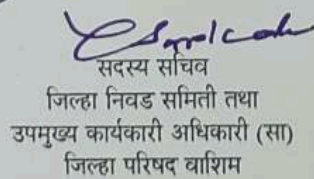 सदस्य सचिव
जिल्हा निवड समिती तथा
उपमुख्य कार्यकारी अधिकारी (सा)
जिल्हा परिषद वाशिम